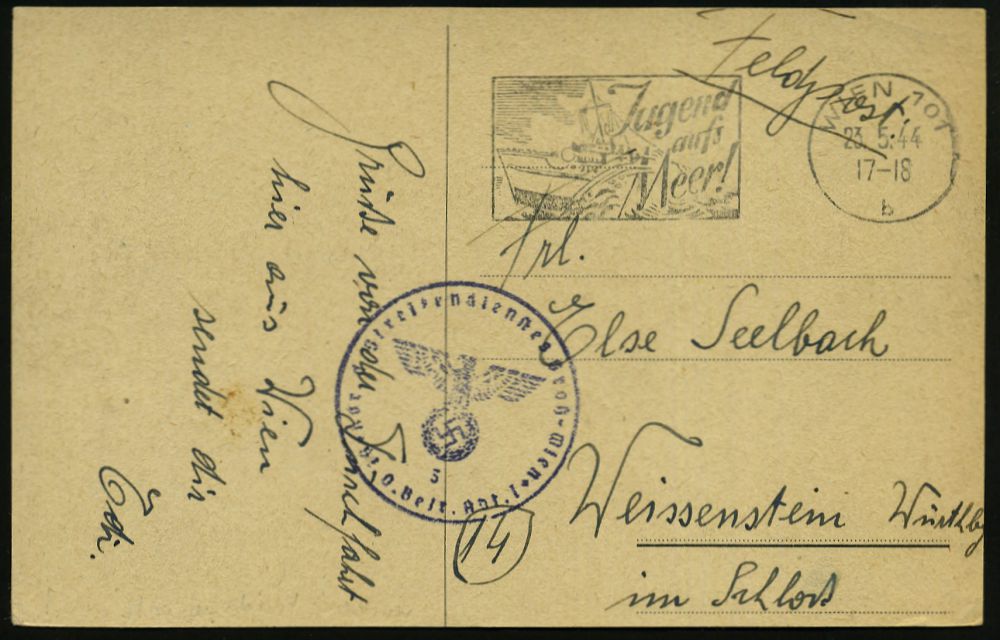 Feldpost.
Jugend
aufs
Meer!
WIEN 101
23.5.44
17-18
b
Grüße von der Durchfahrt
hier aus Wien
sendet dir
Edi.
Frl.
Else Seelbach
(14) Weissenstein Württbg
im Schloß
Streifendienstes Groß-Wien
O. Belt. Abt. I
5